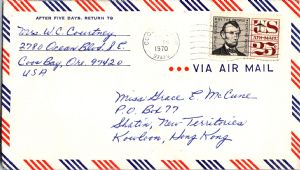 AFTER FIVE DAYS, RETURN TO
Mrs. W.C. Courtney
2780 Ocean Blvd. S.E.
Coos Bay, Ore. 97420
USA
1970
US
AIR MAIL
25
VIA AIR MAIL
Miss Grace E. McCune
P.O. Box 77
Shatin, New Territories
Kowloon, Hong Kong